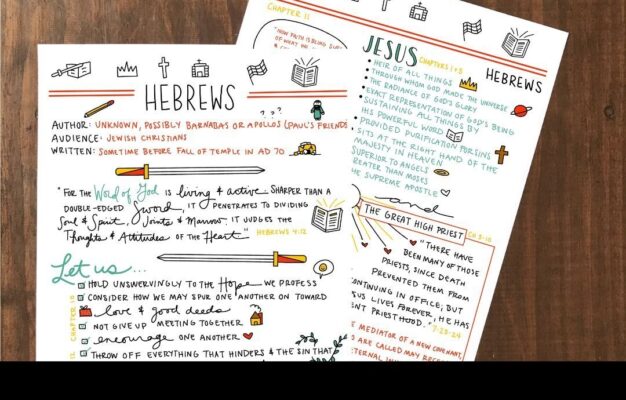 HEBREWS
AUTHOR: UNKNOWN, POSSIBLY BARNABAS OR APOLLOS (PAUL'S FRIENDS
AUDIENCE: JEWISH CHRISTIANS
WRITTEN: SOMETIME BEFORE FALL OF TEMPLE IN AD 70
? ? ?
"FOR THE Word of God IS living & active. SHARPER THAN A
DOUBLE-EDGED Sword, IT PENETRATES TO DIVIDING
Soul & Spirit, Joints & Marrow; IT JUDGES THE
Thoughts & Attitudes OF THE Heart" HEBREWS 4:12
Let us...
CHAPTER 10
HOLD UNSWERVINGLY TO THE Hope WE PROFESS
CONSIDER HOW WE MAY SPUR ONE ANOTHER ON TOWARD
love & good deeds
NOT GIVE UP MEETING TOGETHER
encourage ONE ANOTHER
12
THROW OFF EVERYTHING THAT HINDERS & THE SIN THAT
CHAPTER 11
"NOW FAITH IS BEING SURE
OF WHAT WE
JESUS CHAPTERS 1+3
HEBREWS
• HEIR OF ALL THINGS
• THROUGH WHOM GOD MADE THE UNIVERSE
• THE RADIANCE OF GOD'S GLORY
• EXACT REPRESENTATION OF GOD'S BEING
• SUSTAINING ALL THINGS BY
HIS POWERFUL WORD
• PROVIDED PURIFICATION FOR SINS
• SITS AT THE RIGHT HAND OF THE
MAJESTY IN HEAVEN
SUPERIOR TO ANGELS
GREATER THAN MOSES
THE SUPREME APOSTLE
and
THE GREAT HIGH PRIEST
"THERE HAVE
BEEN MANY OF THOSE
PRIESTS, SINCE DEATH
PREVENTED THEM FROM
CONTINUING IN OFFICE; BUT
JESUS LIVES FOREVER, HE HAS
ENT PRIESTHOOD." 7:23-24
THE MEDIATOR OF A NEW COVENANT,
ARE CALLED MAY RECE
ETERNAL